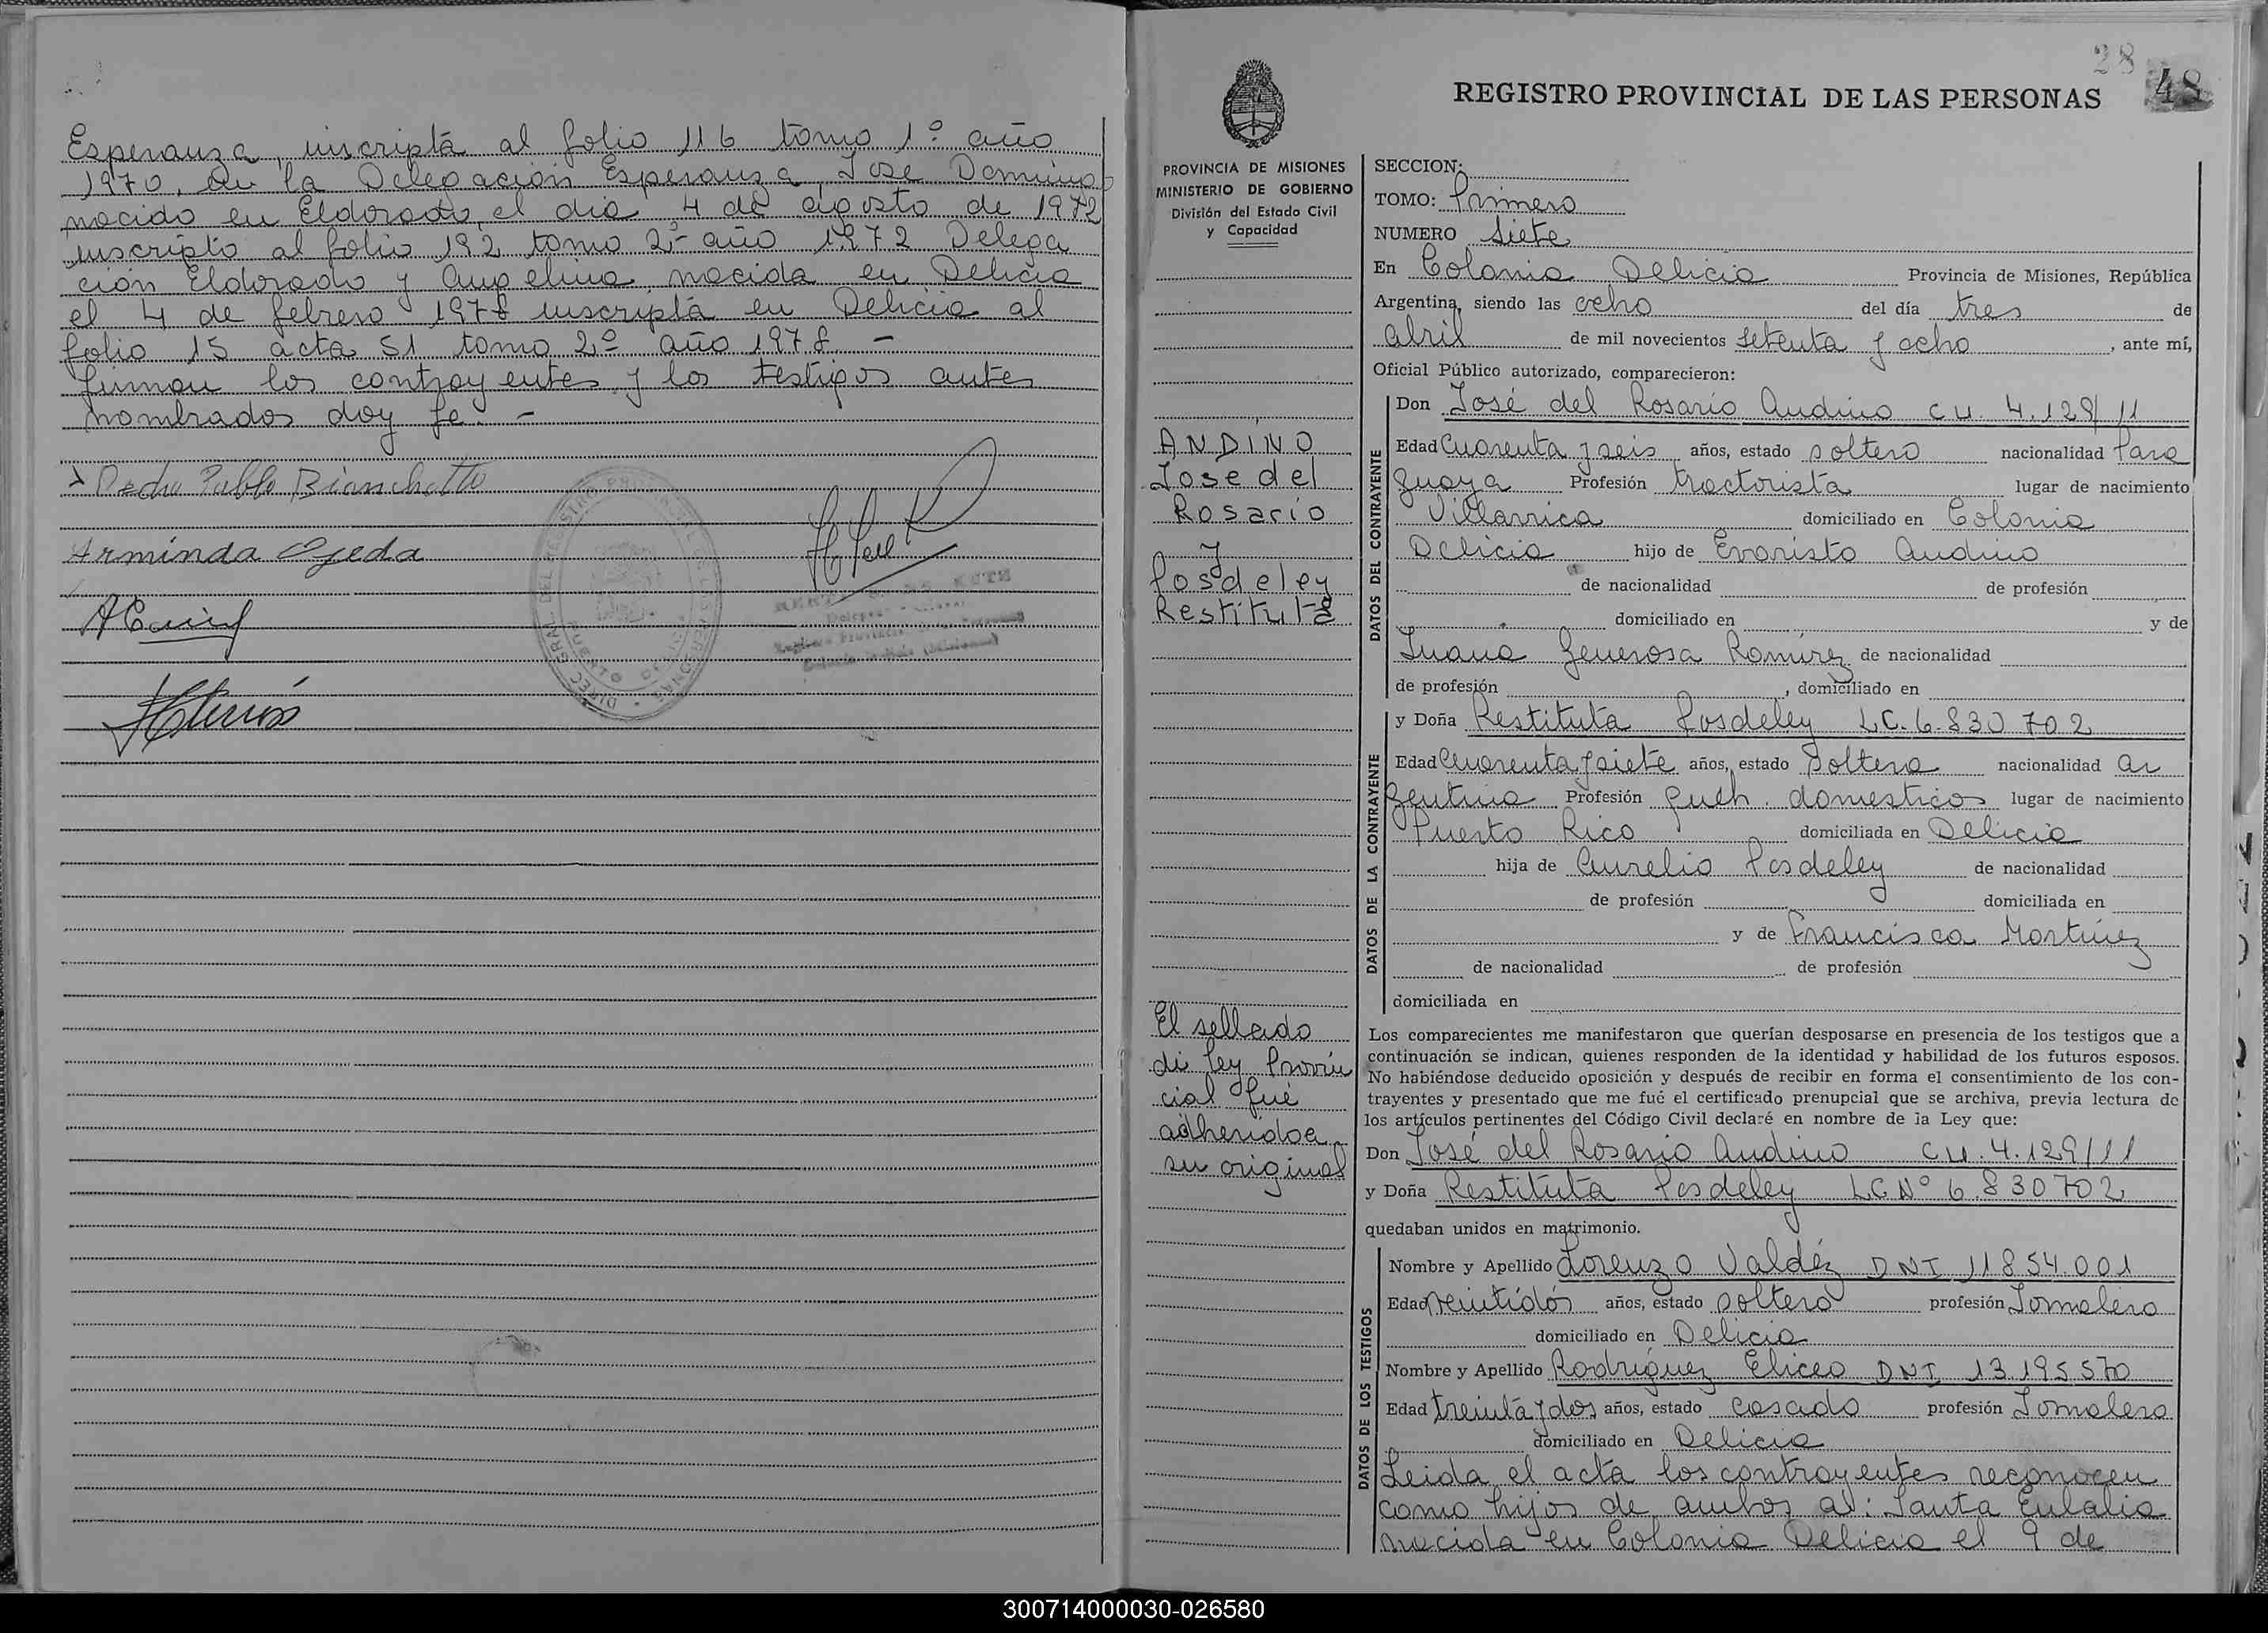 Esperanza, inscriptá al folio 116 tomo 1º año
1970, en la Delegación Esperanza, José Domingo
nacido en Eldorado, el día 4 de agosto de 1972
inscripto al folio 192 tomo 2º año 1972 Delega
ción Eldorado y Angelina nacida en Delicia
el 4 de febrero 1978 inscriptá en Delicia al
folio 15 acta 51 tomo 2º año 1978. –
firman los contrayentes y los testigos antes
nombrados doy fe. –
Pedro Pablo Bianchetto
Arminda Ojeda
28
48
REGISTRO PROVINCIAL DE LAS PERSONAS
PROVINCIA DE MISIONES
MINISTERIO DE GOBIERNO
División del Estado Civil
y Capacidad
ANDINO
José del
Rosario
y
Posdeley
Restituta
El sellado
de ley Provin
cial fué
adherido a
su original
SECCION:
TOMO: Primero
NUMERO Siete
En Colonia Delicia Provincia de Misiones, República
Argentina, siendo las ocho del día tres de
abril de mil novecientos setenta y ocho, ante mí,
Oficial Público autorizado, comparecieron:
DATOS DEL CONTRAYENTE
Don José del Rosario Andino C.U. 4.129/11
Edad Cuarenta y seis años, estado soltero nacionalidad Para
guaya Profesión tractorista lugar de nacimiento
Villarrica domiciliado en Colonia
Delicia hijo de Evaristo Andino
de nacionalidad de profesión
domiciliado en y de
Juana Generosa Ramírez de nacionalidad
de profesión , domiciliado en
DATOS DE LA CONTRAYENTE
y Doña Restituta Posdeley LC. 6.830 702
Edad Cuarenta y siete años, estado soltera nacionalidad ar
gentina Profesión queh. domesticos lugar de nacimiento
Puerto Rico domiciliada en Delicia
hija de Aurelio Posdeley de nacionalidad
de profesión domiciliada en
y de Francisca Martínez
de nacionalidad de profesión
domiciliada en
Los comparecientes me manifestaron que querían desposarse en presencia de los testigos que a
continuación se indican, quienes responden de la identidad y habilidad de los futuros esposos.
No habiéndose deducido oposición y después de recibir en forma el consentimiento de los con-
trayentes y presentado que me fué el certificado prenupcial que se archiva, previa lectura de
los artículos pertinentes del Código Civil declaré en nombre de la Ley que:
Don José del Rosario Andino C.U. 4.129/11
y Doña Restituta Posdeley LC Nº 6.830702
quedaban unidos en matrimonio.
DATOS DE LOS TESTIGOS
Nombre y Apellido Lorenzo Valdéz DNI 11854.001
Edad veintidós años, estado soltero profesión Jornalero
domiciliado en Delicia
Nombre y Apellido Rodríguez Eliceo DNI 13.195.570
Edad treinta y dos años, estado casado profesión Jornalero
domiciliado en Delicia
Leida el acta los contrayentes reconocen
como hijos de ambos a: Santa Eulalia
nacida en Colonia Delicia el 9 de
300714000030-026580